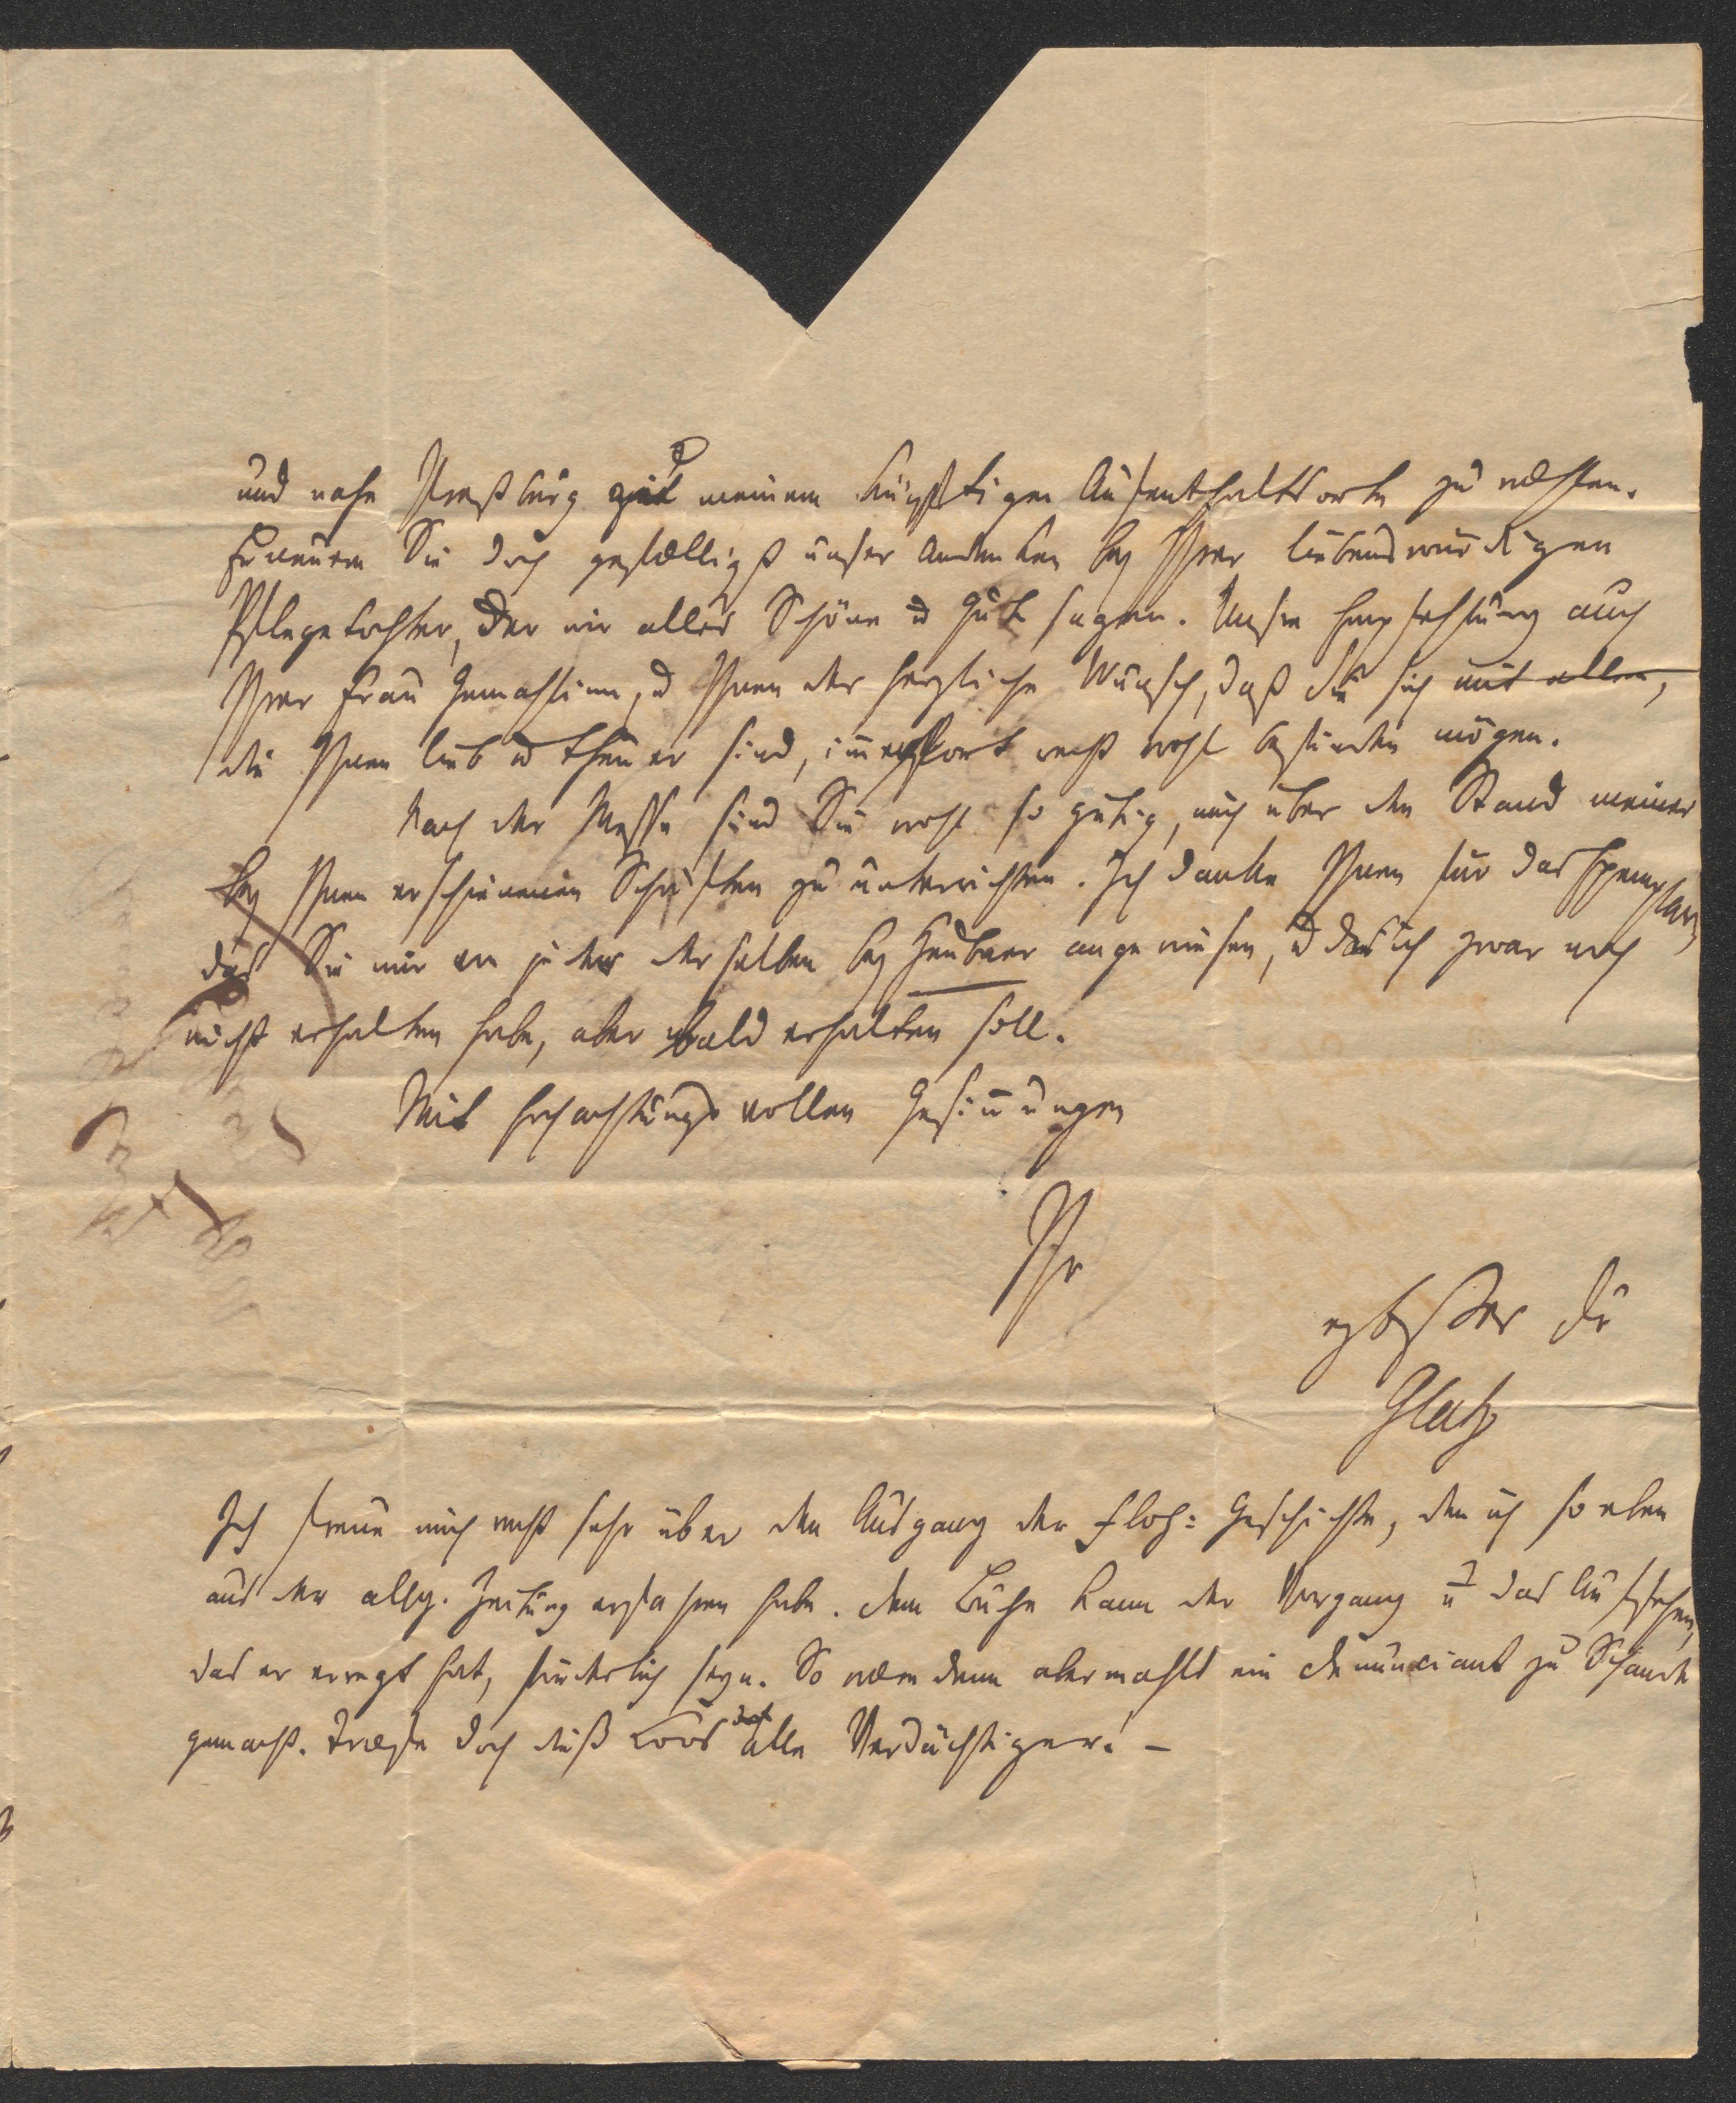 und nahe Preßburg zu meinem künftigen Aufenthaltsorte zu wählen.
Erneuern Sie doch gefälligst unser Andenken bey Ihrer liebenswürdigen
Pflegetochter, der wir alles Schöne u Gute sagen. Unsre Empfehlung auch
Ihrer Frau Gemahlinn, u Ihnen der herzliche Wunsch, daß Sie sich mit allen,
die Ihnen lieb u theuer sind, immerfort recht wohl befinden mögen.
Nach der Messe sind Sie wohl so gütig, mich über den Stand meiner
bey Ihnen erschienenen Schriften zu unterrichten. Ich danke Ihnen für das Exemplar,
das Sie mir von jeder derselben bey Heubner angewiesen, u das ich zwar noch
nicht erhalten habe, aber bald erhalten soll.
Mit hochachtungsvollen Gesinnungen
Ihr
ergbster Dr
Glatz
Ich freue mich recht sehr über den Ausgang der Geschichte, den ich so eben
aus der allg. Zeitung erfahren habe. Dem Buche kann der Vorgang u das Aufsehen,
das er erregt hat, förderlich seyn. So wäre denn abermahls ein Denunciant zu Schande
gemacht. Träfe doch dieß Loos alle Verdächtiger! –